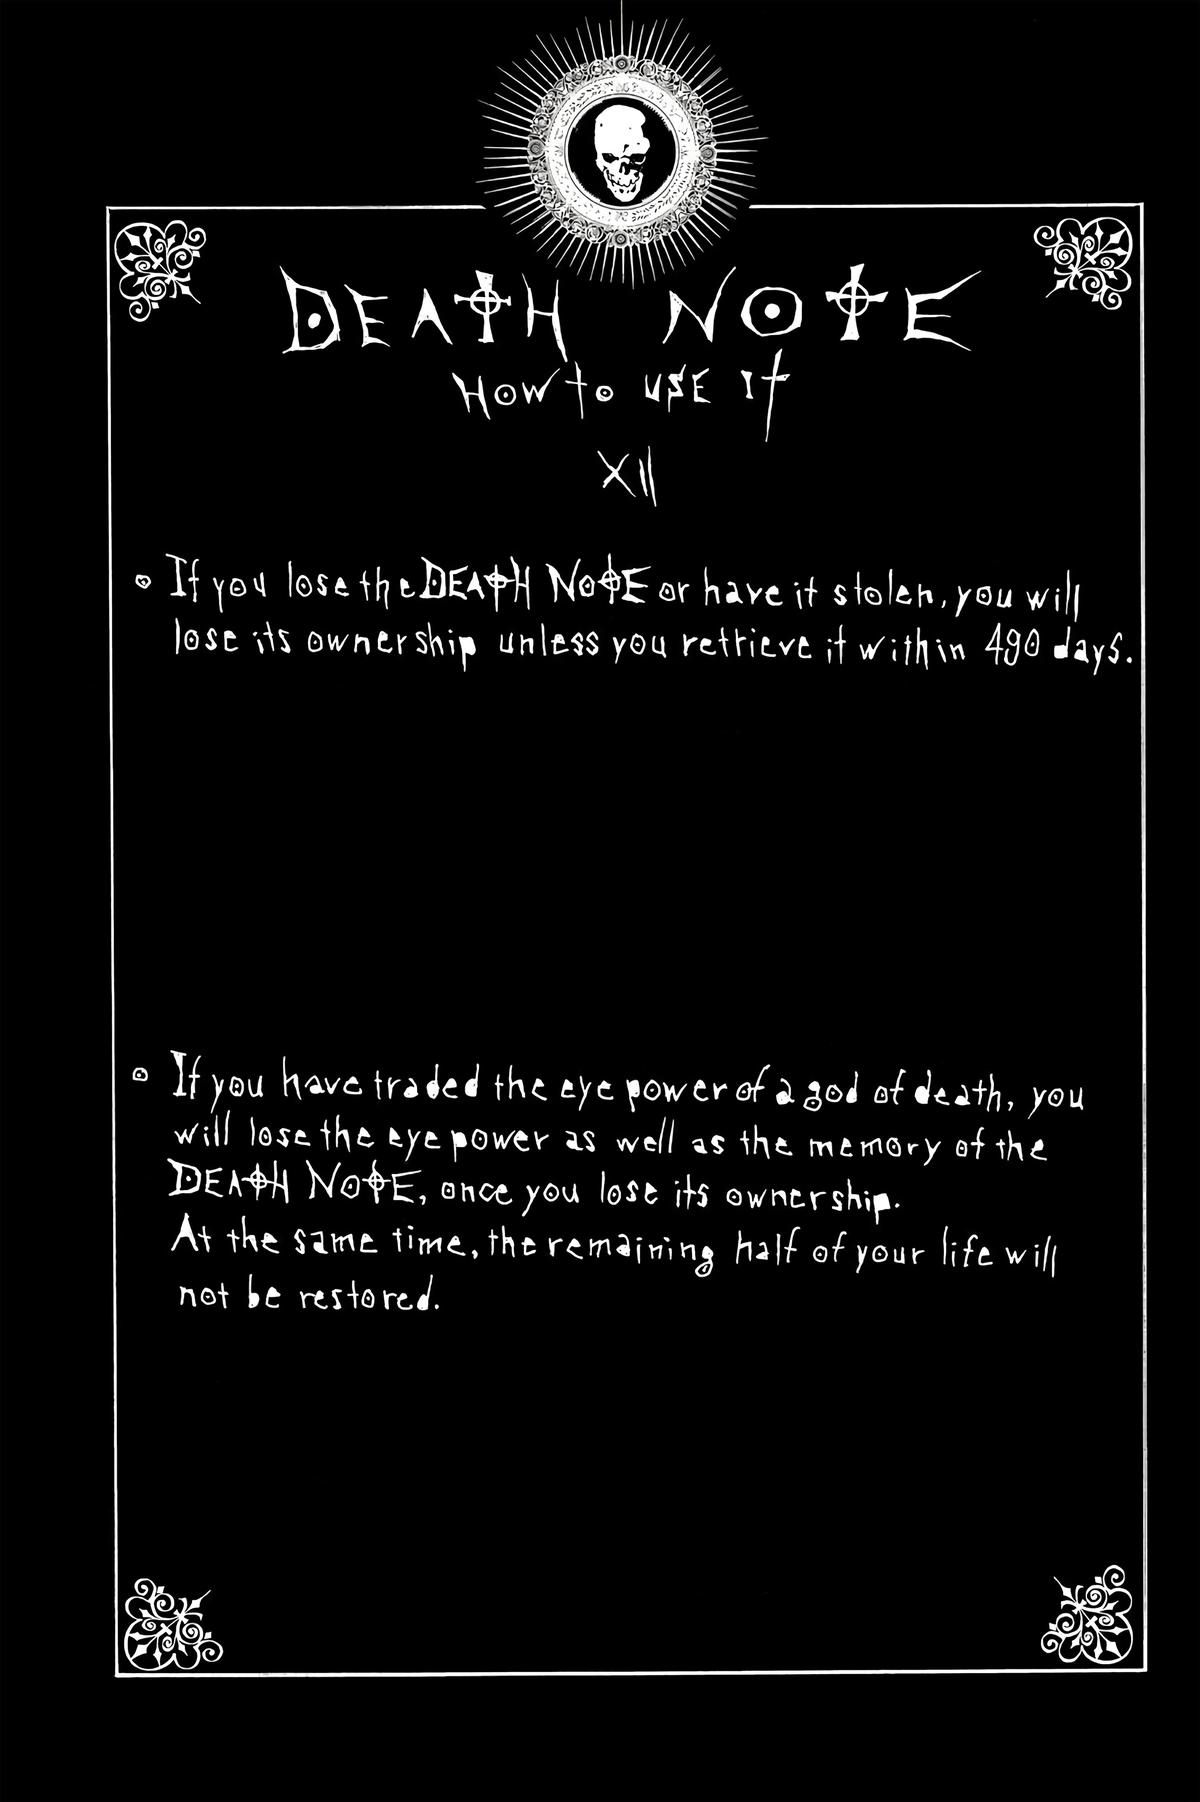 DEATH NOTE
How to use it
XII
If you lose the DEATH NOTE or have it stolen, you will
lose its ownership unless you retrieve it within 490 days.
If you have traded the eye power of a god of death, you
will lose the eye power as well as the memory of the
DEATH NOTE, once you lose its ownership.
At the same time, the remaining half of your life will
not be restored.